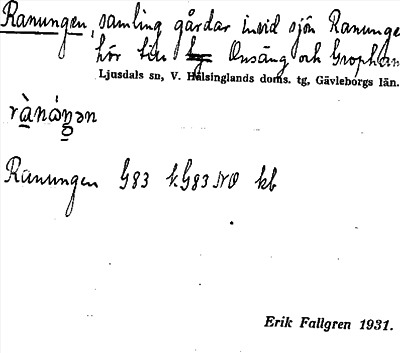 Ranungen, samling gårdar invid sjön Ranunge
hör till Onsäng och Grophan
Ljusdals sn, V. Hälsinglands doms. tg, Gävleborgs län.
Ranungen G83 k.G83 NO kb
Erik Fallgren 1931.